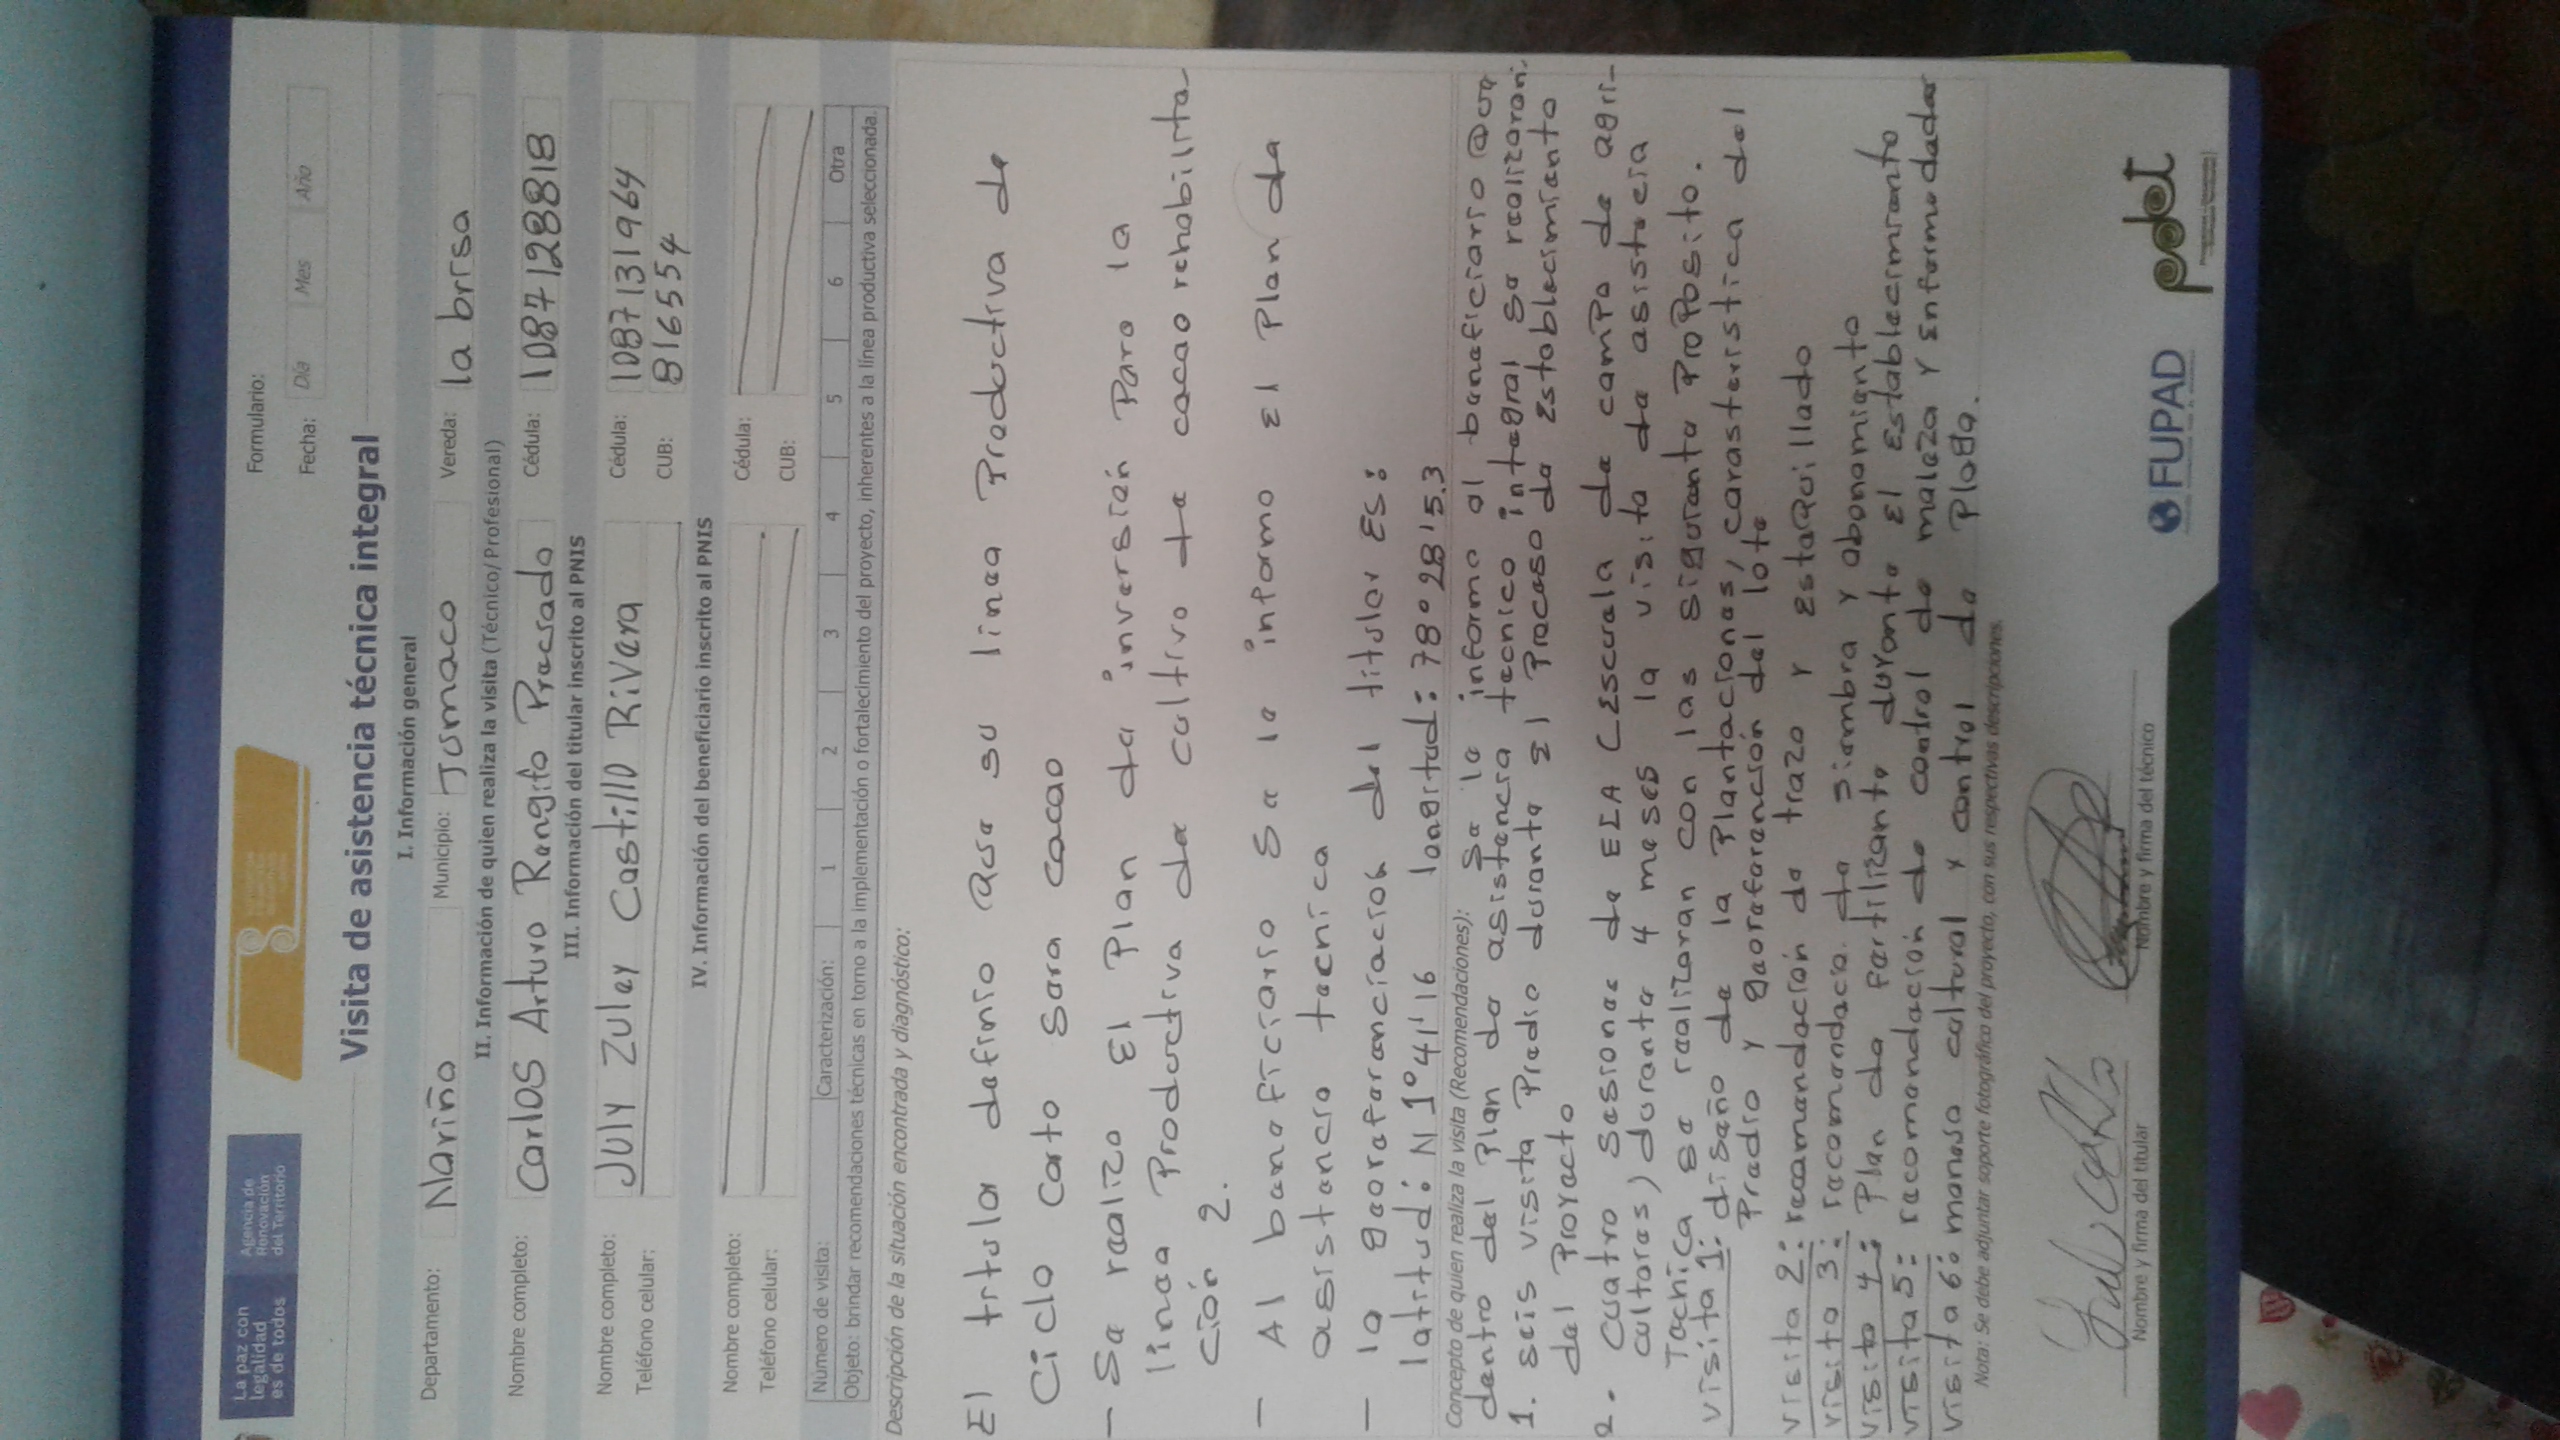 La paz con
legalidad
es de todos
Agencia de
Renovación
del Territorio
Formulario:
Fecha: Día Mes Año
Visita de asistencia técnica integral
I. Información general
Departamento: Nariño Municipio: Tumaco Vereda: la brisa
II. Información de quien realiza la visita (Técnico/ Profesional)
Nombre completo: Carlos Arturo Rengifo Preciado Cédula: 1087128818
III. Información del titular inscrito al PNIS
Nombre completo: JUlY ZUleY Castillo RiVera Cédula: 1087131964
Teléfono celular: CUB: 816554
IV. Información del beneficiario inscrito al PNIS
Nombre completo: Cédula:
Teléfono celular: CUB:
Número de visita: Caracterización: 1 2 3 4 5 6 Otra
Objeto: brindar recomendaciones técnicas en torno a la implementación o fortalecimiento del proyecto, inherentes a la línea productiva seleccionada.
Descripción de la situación encontrada y diagnóstico:
El titular definio que su linea Productiva de
Ciclo corto sera cacao
- Se realizo El Plan de inversión Para la
linea Productiva de cultivo de cacao rehabilita
ción 2.
- Al beneficiario Se le informo El Plan de
asistencia tecnica
- la georeferenciación del titular ES:
latitud: N 1°41'16 longitud: 78°28'15.3
Concepto de quien realiza la visita (Recomendaciones): Se le informo al beneficiario que
dentro del Plan de asistencia tecnica integral se realizaran:
1. seis visita Predio durante El Proceso de Establecimiento
del Proyecto
2. cuatro sesiones de ECA (Escuela de campo de agri-
cultores) durante 4 meses la visita de asistencia
Tecnica se realizaran con las siguiente ProPosito.
visita 1: diseño de la Plantaciones, carasteristica del
Predio y georeferención del lote
visita 2: recomendación de trazo y estaquillado
visita 3: recomendació de siembra y abonamiento
visita 4: Plan de fertilizante durante El Establecimiento
visita 5: recomendación de control de maleza y Enfermedades
visita 6: manejo cultural y control de Plaga.
Nota: Se debe adjuntar soporte fotográfico del proyecto, con sus respectivas descripciones.
Nombre y firma del titular
Nombre y firma del técnico
FUPAD
pdet